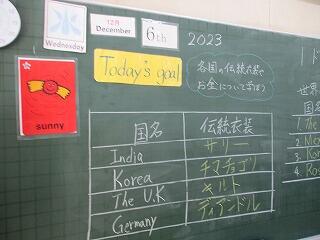 水
Wednesday
12月
December
6th
2023
Today's goal
各国の伝統衣装や
お金について学ぼう
sunny
国名
伝統衣装
India
サリー
Korea
チマチョゴリ
The U.K
キルト
Germany
ディアンドル
世界
国名
1. The
2.
3. Kor
4. Ros